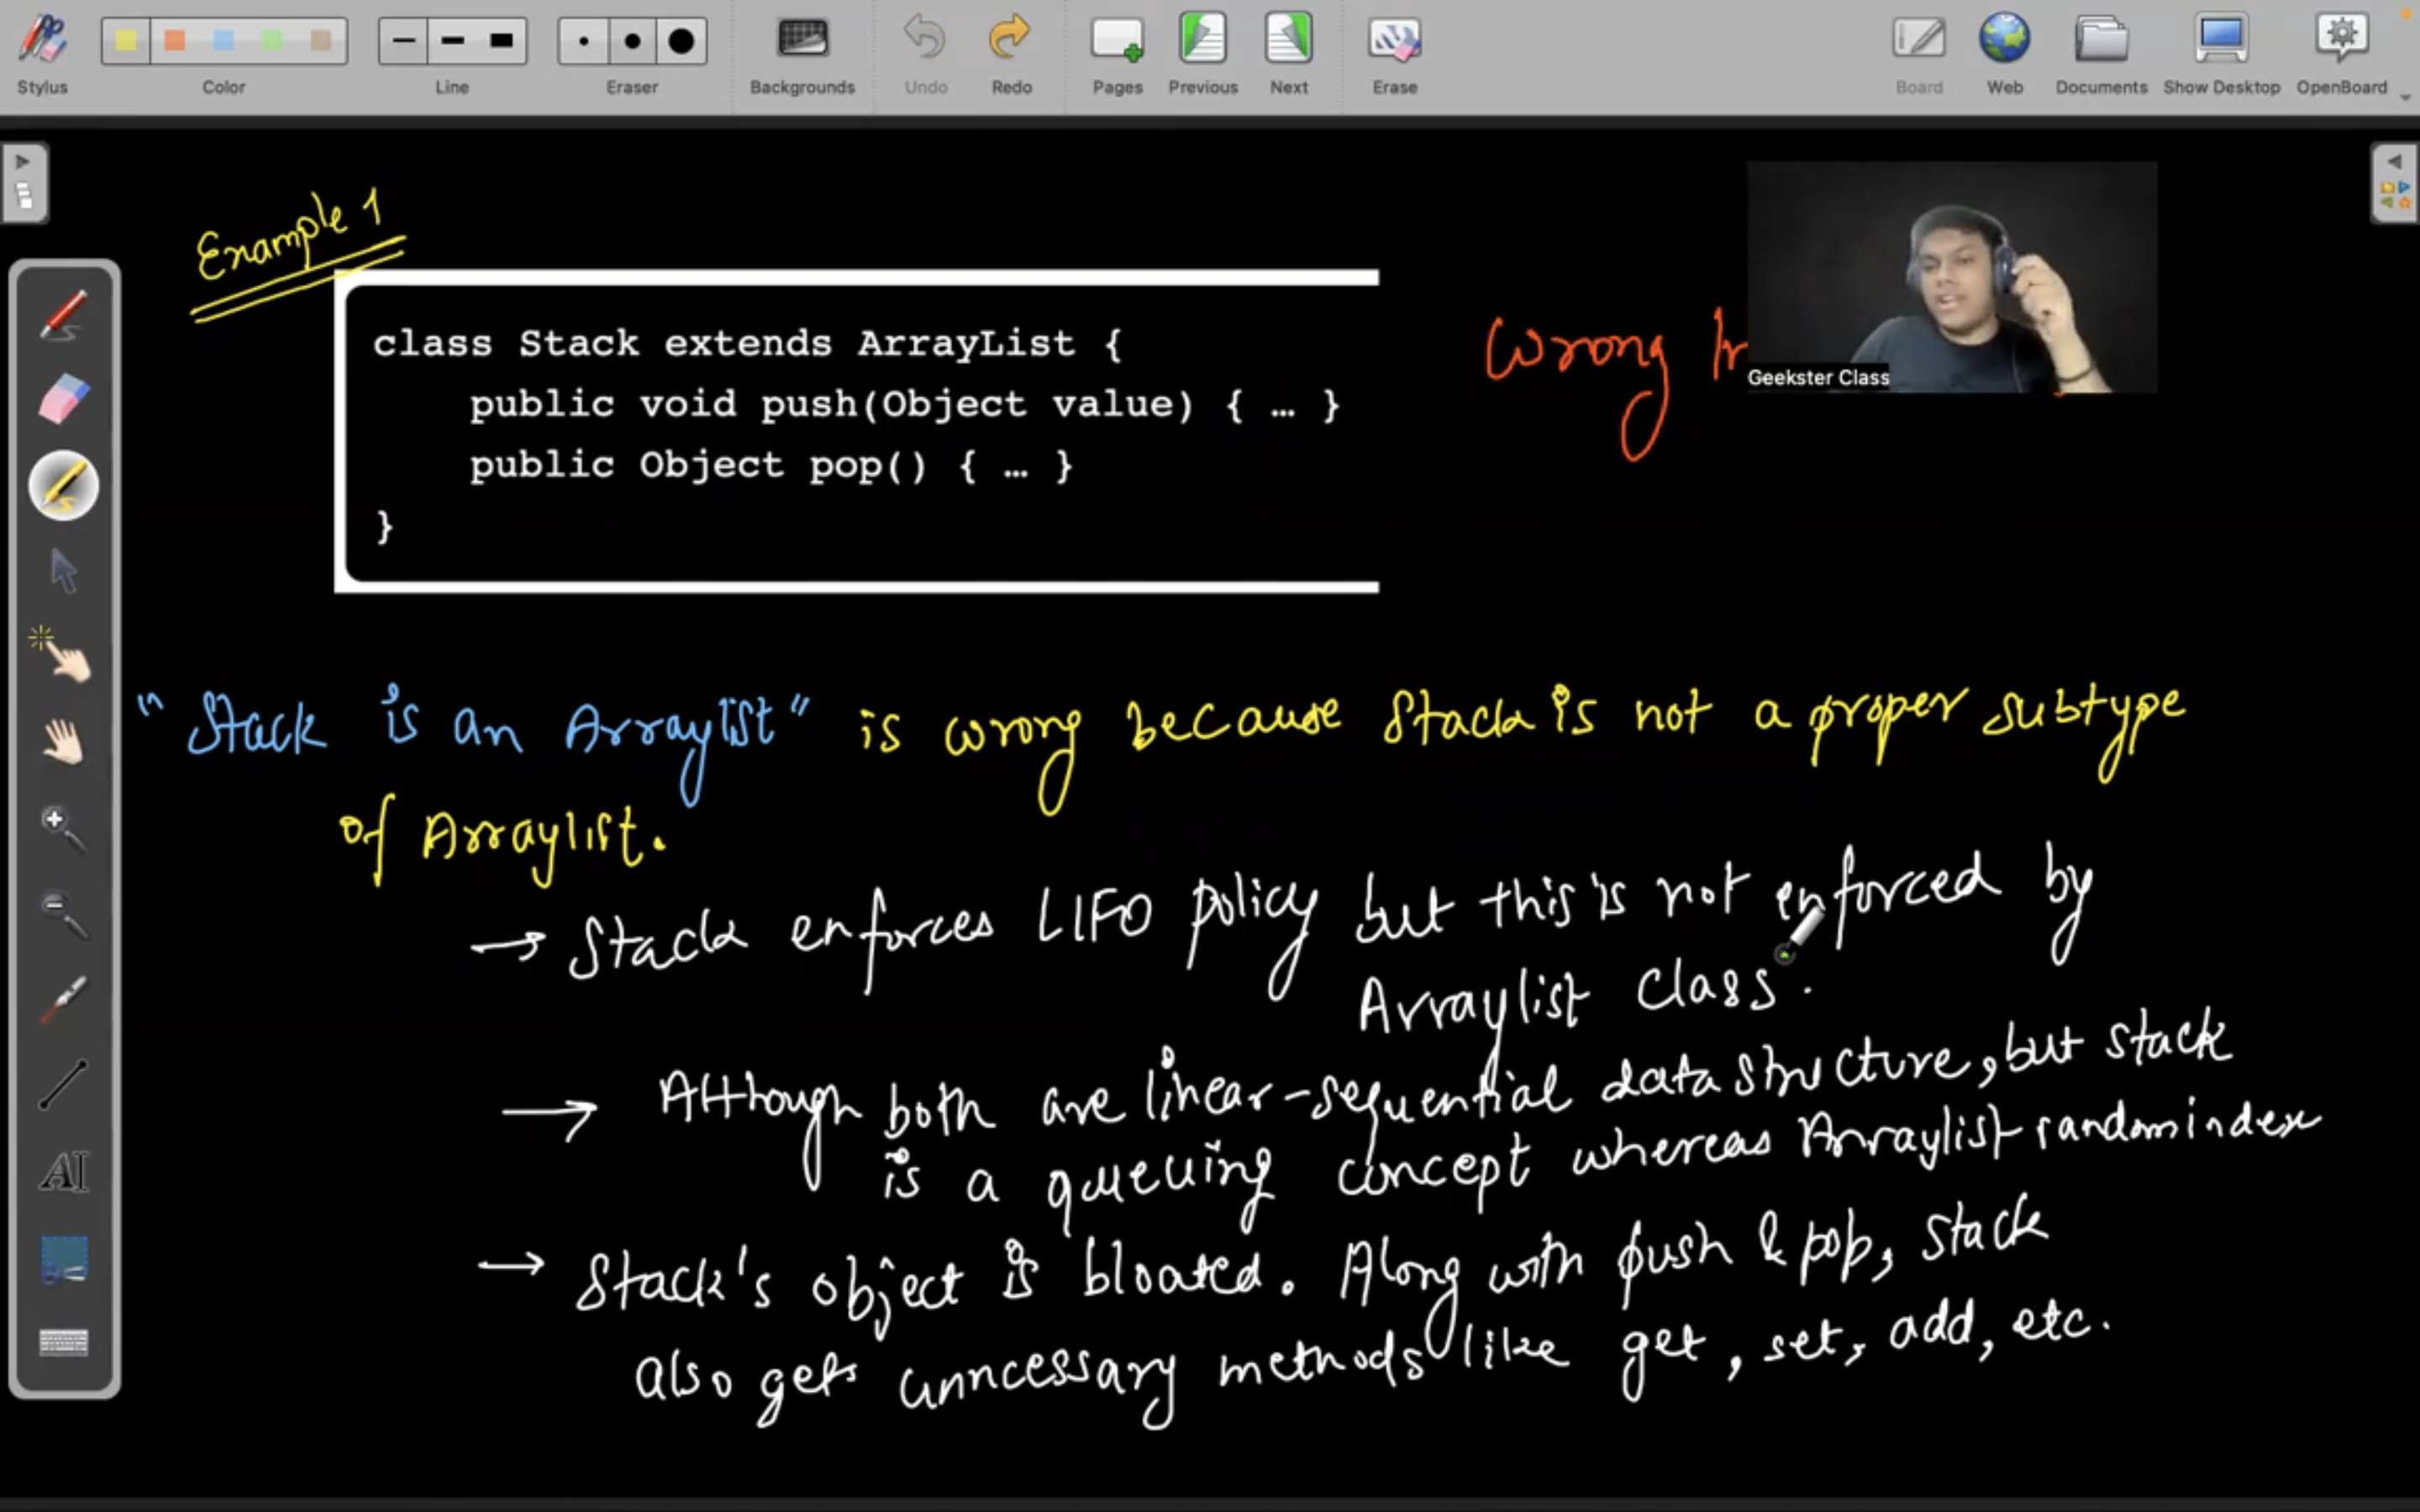 Stylus
Color
Line
Eraser
Backgrounds
Undo
Redo
Pages
Previous
Next
Erase
Board
Web
Documents
Show Desktop
OpenBoard
Example 1
class Stack extends ArrayList {
public void push(Object value) { … }
public Object pop() { … }
}
Wrong
Geekster Class
"Stack is an Arraylist" is wrong because Stack is not a proper subtype
of Arraylist.
→ Stack enforces LIFO policy but this is not enforced by
Arraylist class.
→ Although both are linear-sequential data structure, but stack
is a queuing concept whereas Arraylist-random index
→ Stack's object is bloated. Along with push & pop, stack
also gets unncessary methods like get, set, add, etc.
AI